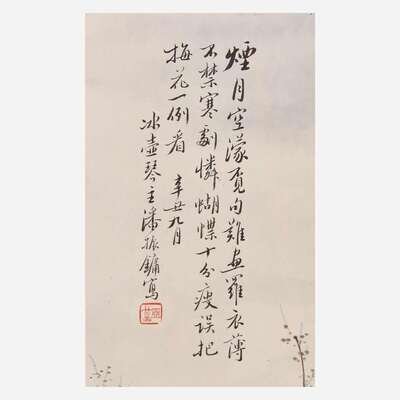 煙月空濛覓句難畫羅衣薄
不禁寒劇憐蝴蝶十分瘦誤把
梅花一例看 辛丑九月
冰壺琴主潘振鏞寫